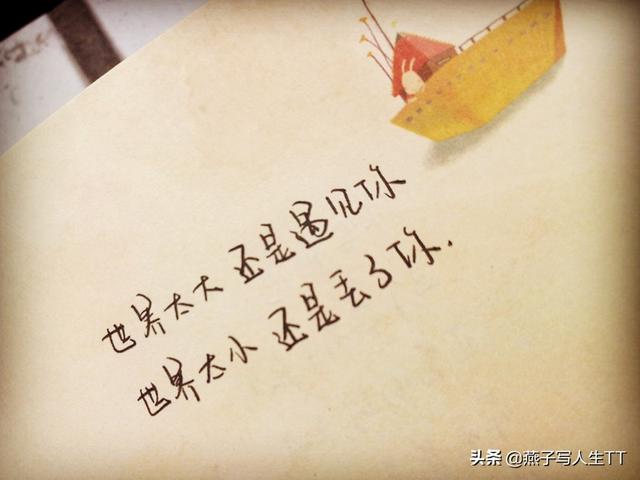 世界太大 还是遇见你
世界太小 还是丢了你.
头条 @燕子写人生TT